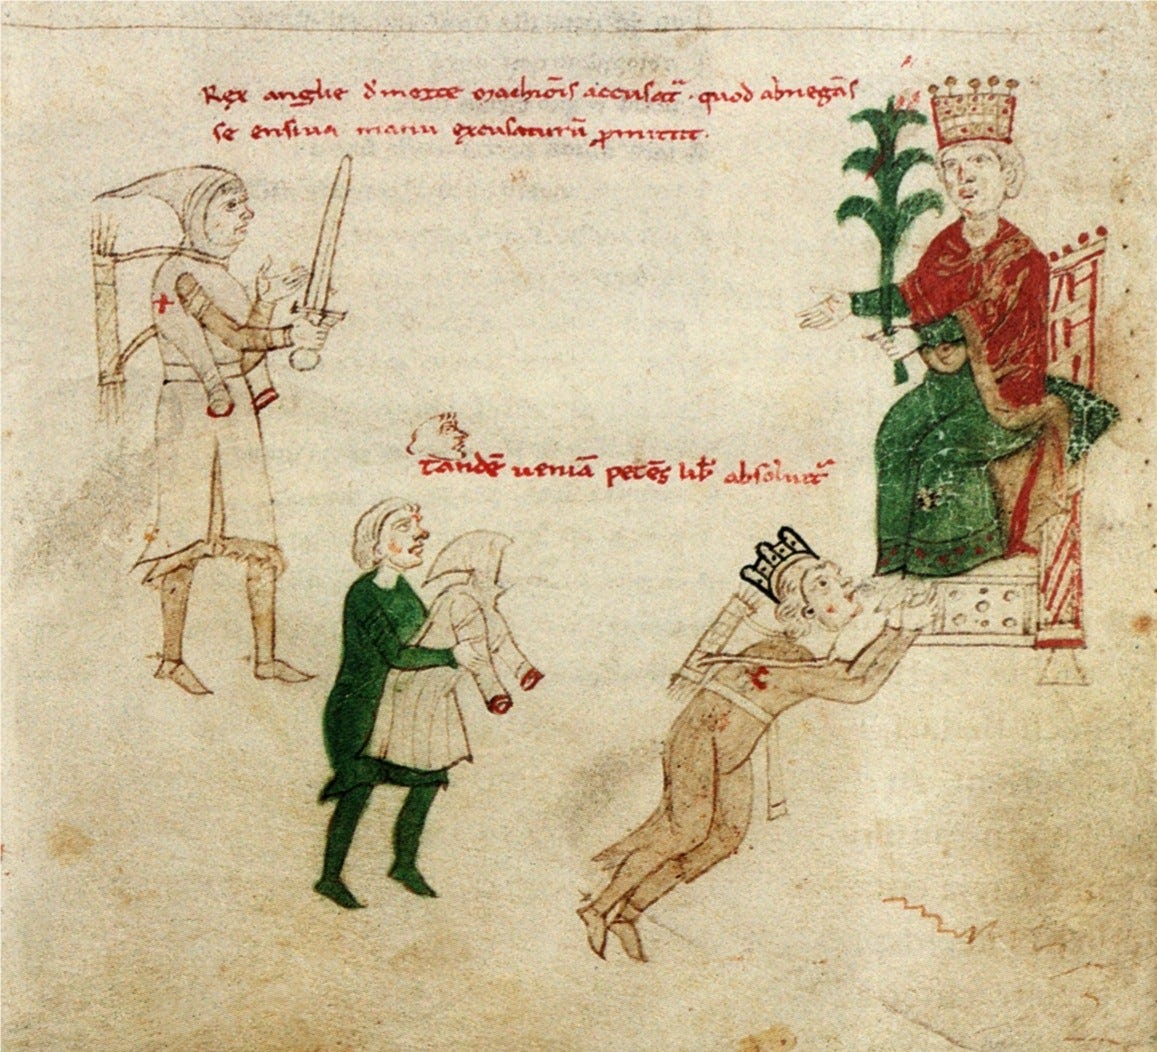 Rex anglie d̄ morte machiōis accusat᷑ . quod abnegās
se ensiua manu excusaturū ꝓmittit.
tandē ueniā petēs lib̄ absoluit᷑